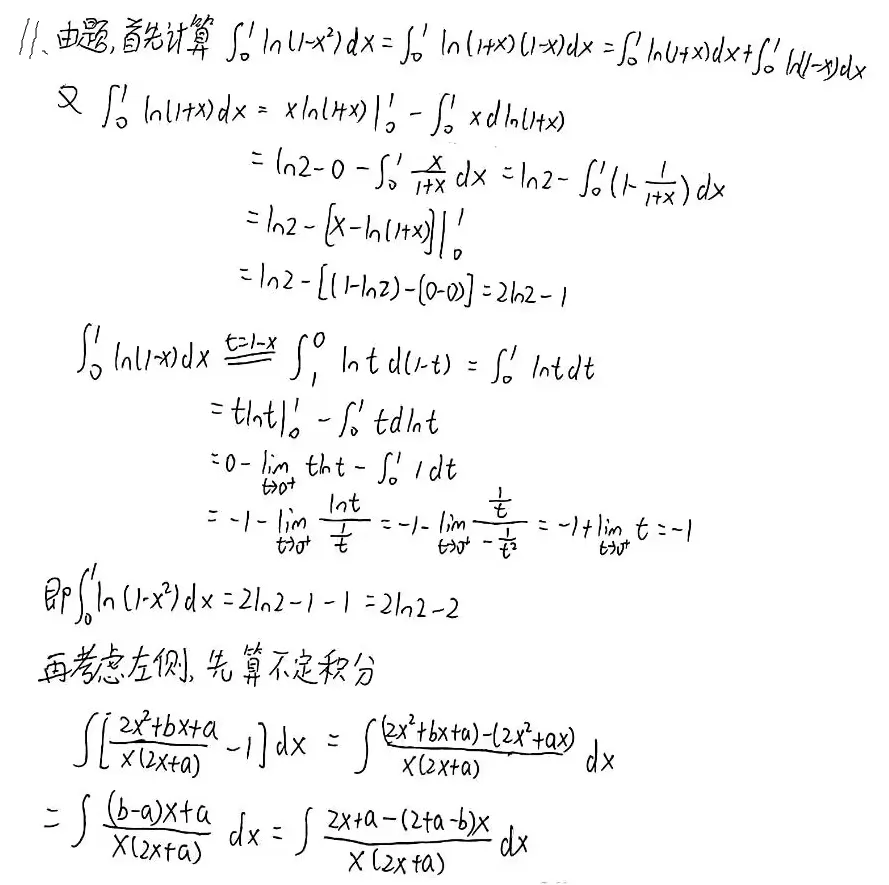 11、由题,首先计算 ∫₀¹ ln(1-x²)dx = ∫₀¹ ln(1+x)(1-x)dx = ∫₀¹ ln(1+x)dx + ∫₀¹ ln(1-x)dx
又 ∫₀¹ ln(1+x)dx = xln(1+x)|₀¹ - ∫₀¹ xdln(1+x)
= ln2-0-∫₀¹ x/(1+x) dx = ln2-∫₀¹(1-1/(1+x))dx
= ln2-[x-ln(1+x)]|₀¹
= ln2-[(1-ln2)-(0-0)] = 2ln2-1
∫₀¹ ln(1-x)dx =(t=1-x)= ∫₁⁰ lnt d(1-t) = ∫₀¹ lntdt
= tlnt|₀¹ - ∫₀¹ tdlnt
= 0-lim_{t→0⁺} tlnt - ∫₀¹ 1dt
= -1-lim_{t→0⁺} lnt/(1/t) = -1-lim_{t→0⁺} (1/t)/(-1/t²) = -1+lim_{t→0⁺} t = -1
即∫₀¹ ln(1-x²)dx = 2ln2-1-1 = 2ln2-2
再考虑左侧,先算不定积分
∫[(2x²+bx+a)/(x(2x+a)) -1]dx = ∫((2x²+bx+a)-(2x²+ax))/(x(2x+a)) dx
= ∫ ((b-a)x+a)/(x(2x+a)) dx = ∫ (2x+a-(2+a-b)x)/(x(2x+a)) dx